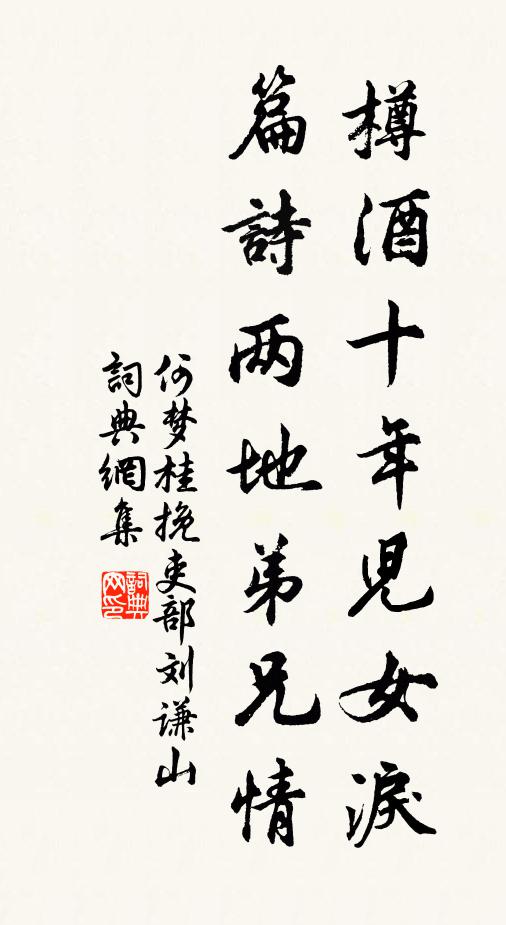 樽酒十年児女淚
篇詩两地弟兄情
何梦桂挽吏部刘谦山
詞典網集
詞典网印